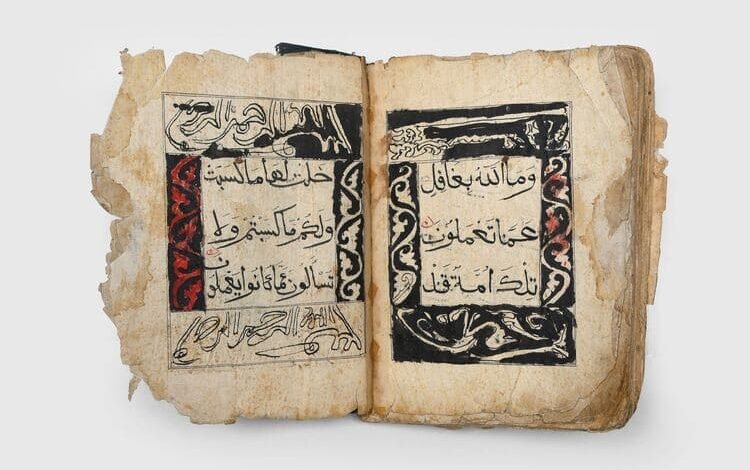 وما الله بغافل
عما تعملون
تلك امة قد
خلت لها ما كسبت
ولكم ما كسبتم ولا
تسألون عما كانوا يعملون